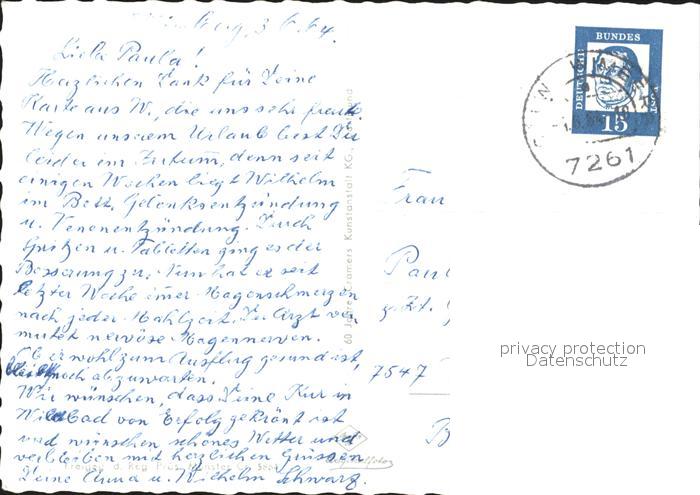 3.6.64.
Liebe Paula!
Herzlichen Dank für Deine
Karte aus W., die uns sehr freute
Wegen unserem Urlaub bist Du
leider im Irrtum, denn seit
einigen Wochen liegt Wilhelm
im Bett. Gelenksentzündung
u. Venenentzündung. Durch
Spritzen u. Tabletten ging es der
Besserung zu. Nun hat er seit
letzter Woche immer Magenschmerzen
nach jeder Mahlzeit. Der Arzt ver
mutet nervöse Magennerven.
Ob er wohl zum Ausflug gesund ist,
bleibt noch abzuwarten.
Wir wünschen, dass Deine Kur in
Wildbad von Erfolg gekrönt ist
und wünschen schönes Wetter und
verbleiben mit herzlichen Grüssen
Deine Anna u. Wilhelm Schwarz.
60 Jahre Cramers Kunstanstalt KG
Freigeg. d. Reg. Präs. Münster
DEUTSCHE
BUNDES
POST
15
7261
Frau
Paul
z. Zt.
7547
B
privacy protection
Datenschutz